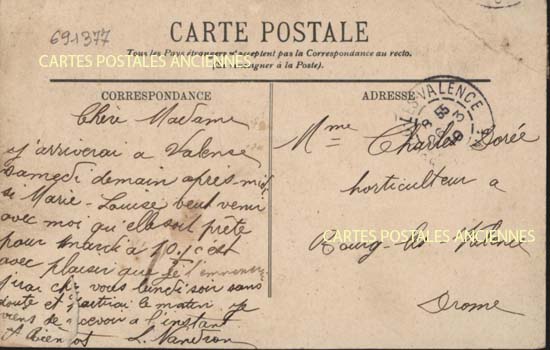 691377
CARTE POSTALE
Tous les Pays étrangers n'acceptent pas la Correspondance au recto.
(Se renseigner à la Poste).
CARTES POSTALES ANCIENNES
CORRESPONDANCE
Chère Madame
j'arriverai a Valence
samedi demain après-midi
si Marie-Louise veut venir
avec moi qu'elle soit prête
pour mardi a 10
avec plaisir que je l'emmènerai
j'irai chez vous lundi soir sans
doute et partirai le matin je
viens de recevoir a l'instant
A Bientot
ADRESSE
VALENCE
Mme Charles Dorée
horticulteur a
Bourg-les-Valence
CARTES POSTALES ANCIENNES
Drome